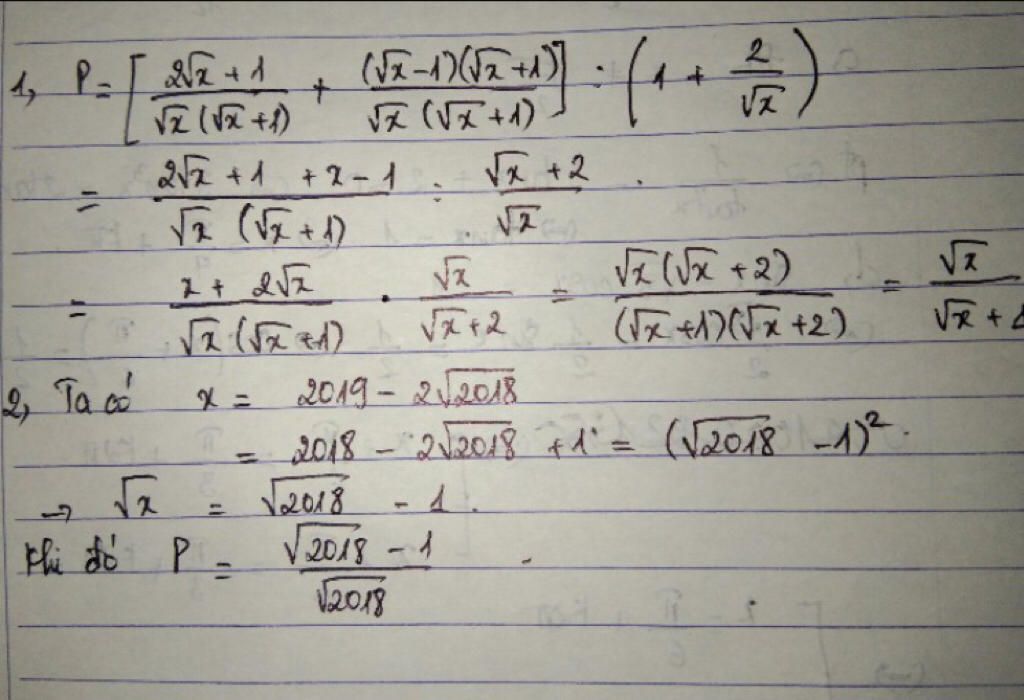 1, P = [ (2√x + 1)/(√x (√x + 1)) + ((√x - 1)(√x + 1))/(√x (√x + 1)) ] : ( 1 + 2/√x )
= (2√x + 1 + x - 1)/(√x (√x + 1)) : (√x + 2)/√x .
= (x + 2√x)/(√x (√x + 1)) . √x/(√x + 2) = (√x (√x + 2))/((√x + 1)(√x + 2)) = √x/(√x +
2, Ta có x = 2019 - 2√2018
= 2018 - 2√2018 + 1 = (√2018 - 1)² .
→ √x = √2018 - 1 .
Khi đó P = (√2018 - 1)/√2018 .